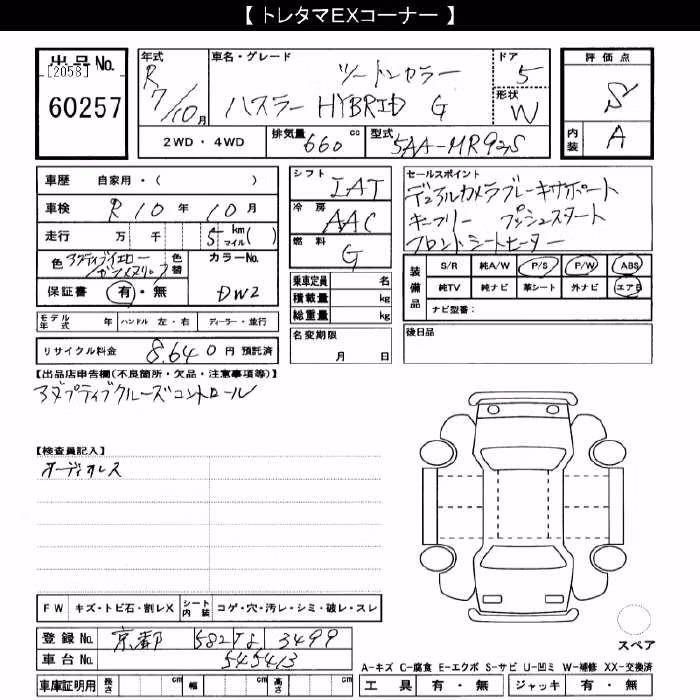 【 トレタマEXコーナー 】
出品No.
[2058]
60257
年式
R7/10月
車名・グレード
ツートンカラー
ハスラー HYBRID G
ドア
5
形状
W
評価点
S
内装
A
2WD・4WD
排気量
660 cc
型式
5AA-MR92S
車歴 自家用・( )
車検 R10年 10月
走行 万 千 5 km マイル( )
色 アクティブイエロー
ガンメタリック
色替
カラーNo.
DW2
保証書 有・無
モデル年式 年 ハンドル 左・右 ディーラー・並行
リサイクル料金 8,640 円 預託済
シフト
IAT
冷房
AAC
燃料
G
乗車定員 名
積載量 kg
総重量 kg
名変期限
月 日
セールスポイント
デュアルカメラブレーキサポート
キーフリー プッシュスタート
フロントシートヒーター
装備品
S/R 純A/W P/S P/W ABS
純TV 純ナビ 革シート 外ナビ エアB
ナビ型番:
後日品
【出品店申告欄(不良箇所・欠品・注意事項等)】
アダプティブクルーズコントロール
【検査員記入】
オーディオレス
FW キズ・トビ石・割レX シート内装 コゲ・穴・汚レ・シミ・破レ・スレ
登録No. 京都 582 3499
車台No. 545413
車庫証明用 長さ cm 幅 cm 高さ cm
スペア
A-キズ C-腐食 E-エクボ S-サビ U-凹ミ W-補修 XX-交換済
工具 有・無 ジャッキ 有・無